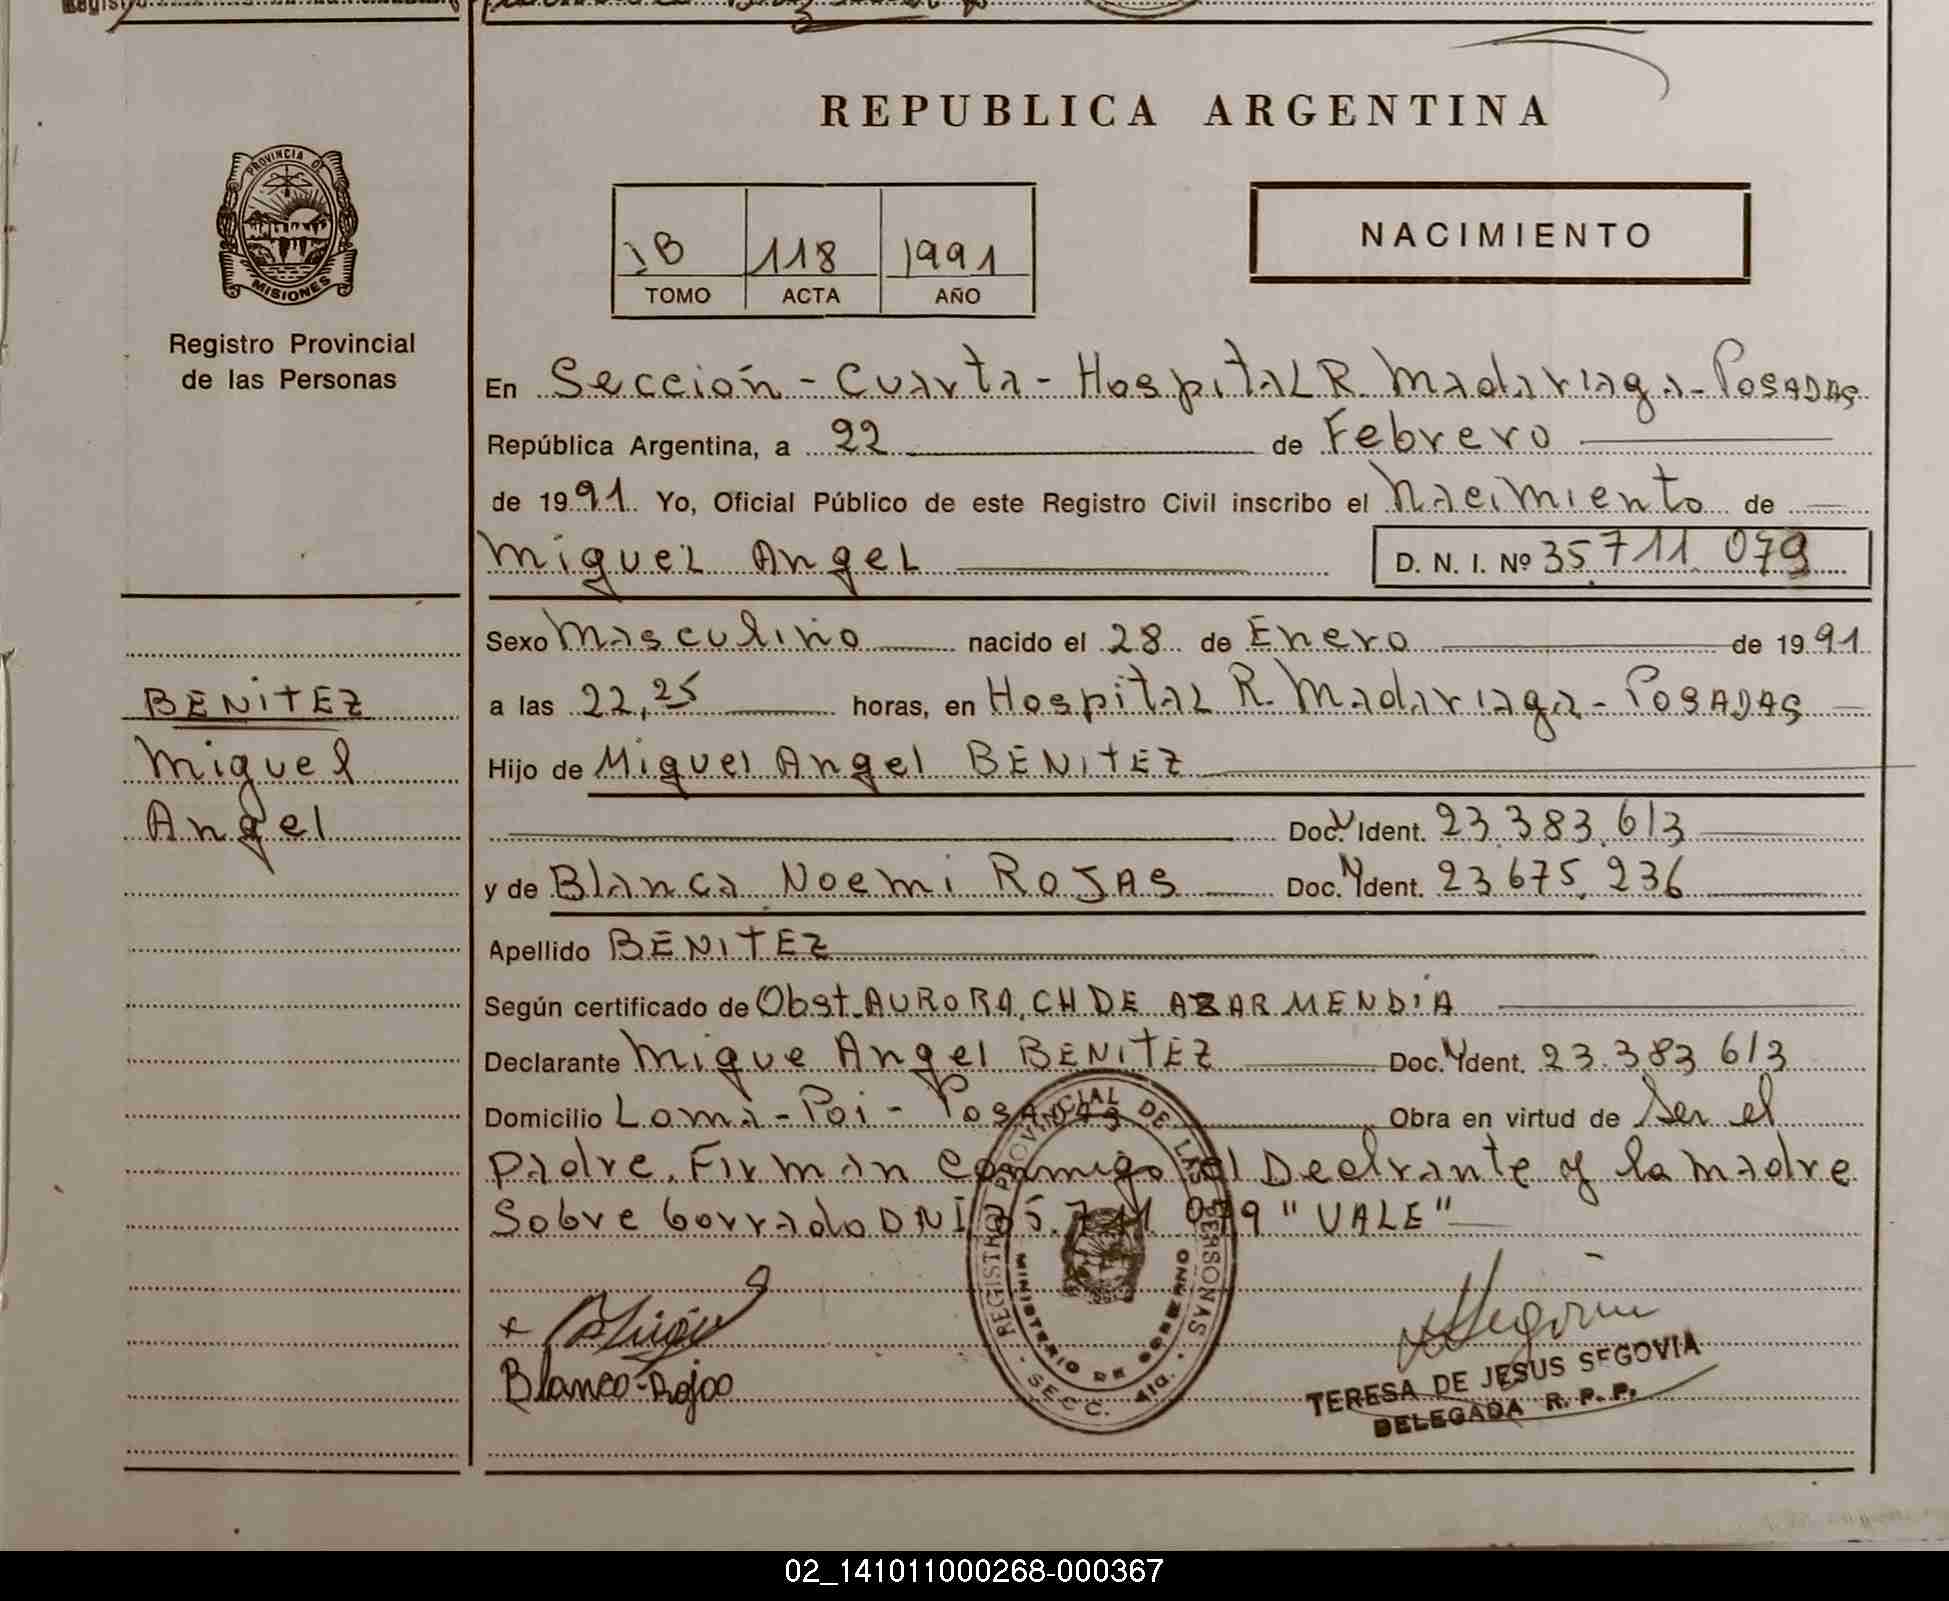 REPUBLICA ARGENTINA
PROVINCIA DE
MISIONES
Registro Provincial
de las Personas
1B 118 1991
TOMO ACTA AÑO
NACIMIENTO
En Sección - Cuarta - Hospital R. Madariaga - POSADAS
República Argentina, a 22 de Febrero
de 1991 Yo, Oficial Público de este Registro Civil inscribo el Nacimiento de
Miguel Angel D. N. I. Nº 35.711.079
Sexo Masculino nacido el 28 de Enero de 1991
a las 22,25 horas, en Hospital R. Madariaga - POSADAS
Hijo de Miguel Angel BENITEZ
Doc. Ident. 23.383.613
y de Blanca Noemi ROJAS Doc. Ident. 23.675.236
Apellido BENITEZ
Según certificado de Obst. AURORA CH DE AZARMENDIA
Declarante Migue Angel BENITEZ Doc. Ident. 23.383.613
Domicilio Loma - Poi - Posadas Obra en virtud de Ser el
Padre. Firman conmigo el Declrante y la madre
Sobre borrado DNI 35.711.079 "VALE"
BENITEZ
Miguel
Angel
REGISTRO PROVINCIAL DE LAS PERSONAS
MINISTERIO DE GOBIERNO
SECC. 4ta.
Blanca Rojas
TERESA DE JESUS SEGOVIA
DELEGADA R. P. P.
02_141011000268-000367